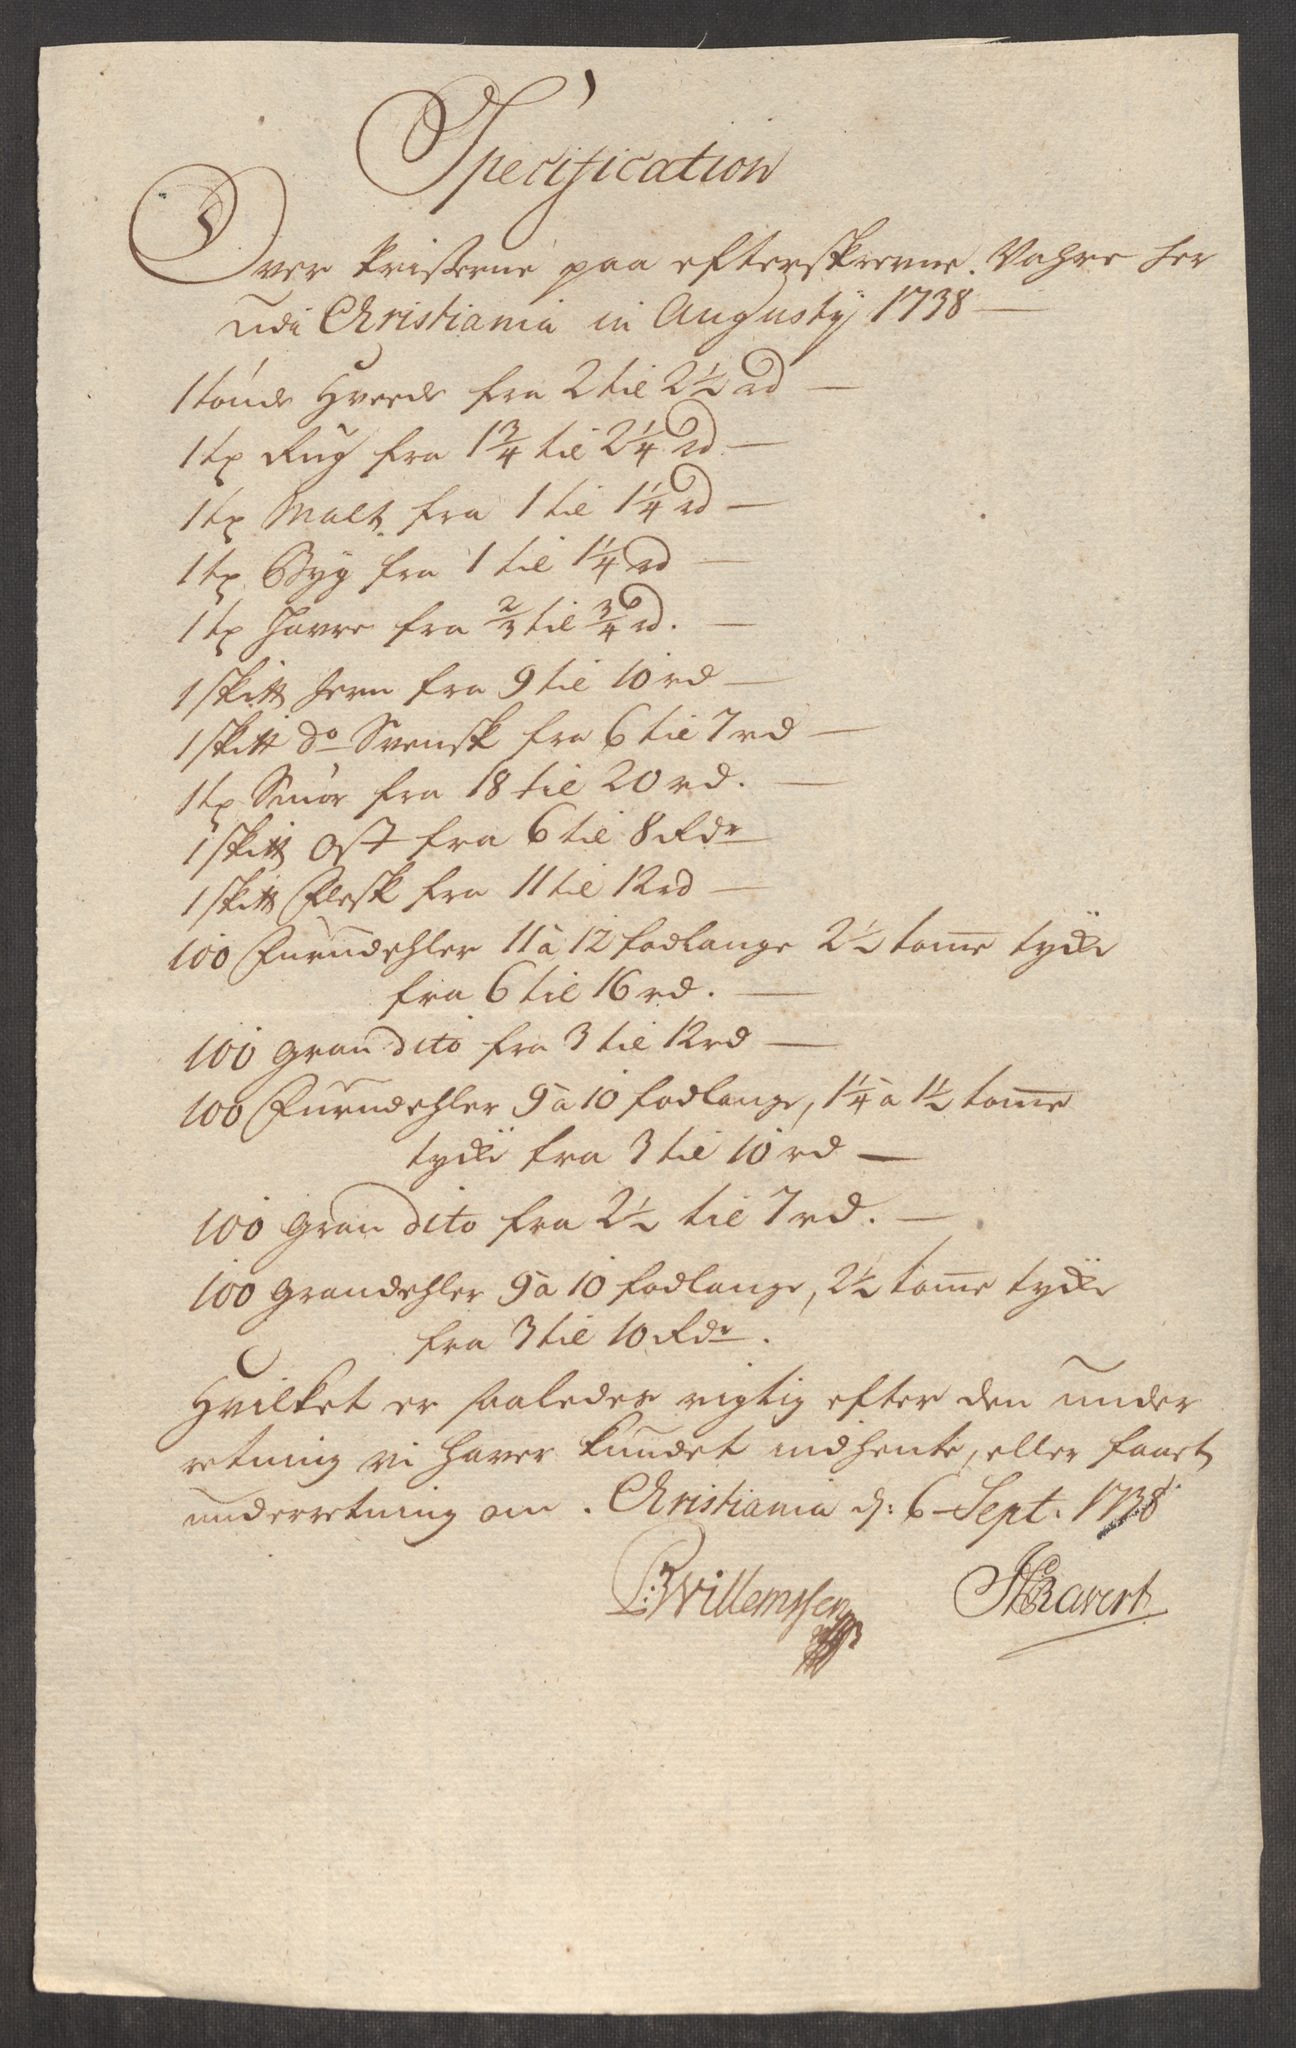 Specification
Over Prißerne paa efterskrevne Vahre her
udi Christiania in Augusty 1738
1 tønde Hvede fra 2 til 2½ rd
1 tø Rug fra 1¾ til 2¼ rd
1 tø Malt fra 1 til 1¼ rd
1 tø Byg fra 1 til 1¼ rd
1 tø Havre fra ⅔ til ¾ rd.
1 skitt Jern fra 9 til 10 rd
1 skitt do Svensk fra 6 til 7 rd
1 tø Smør fra 18 til 20 rd.
1 skitt Ost fra 6 til 8 Rdr
1 skitt Flesk fra 11 til 12 rd
100 Furudehler 11 à 12 fodlange 2½ tome tycke
fra 6 til 16 rd.
100 gran dito fra 3 til 12 rd
100 Furudehler 9 à 10 fodlange, 1¼ à 1½ tome
tycke fra 3 til 10 rd
100 gran dito fra 2½ til 7 rd.
100 grandehler 9 à 10 fodlange, 2½ tome tycke
fra 3 til 10 Rdr.
Hvilket er saaledes rigtig efter den under
retning vi haver kundet indhente, eller faaet
underretning om. Christiania d: 6 Sept. 1738
P: Willemssen
Ravert